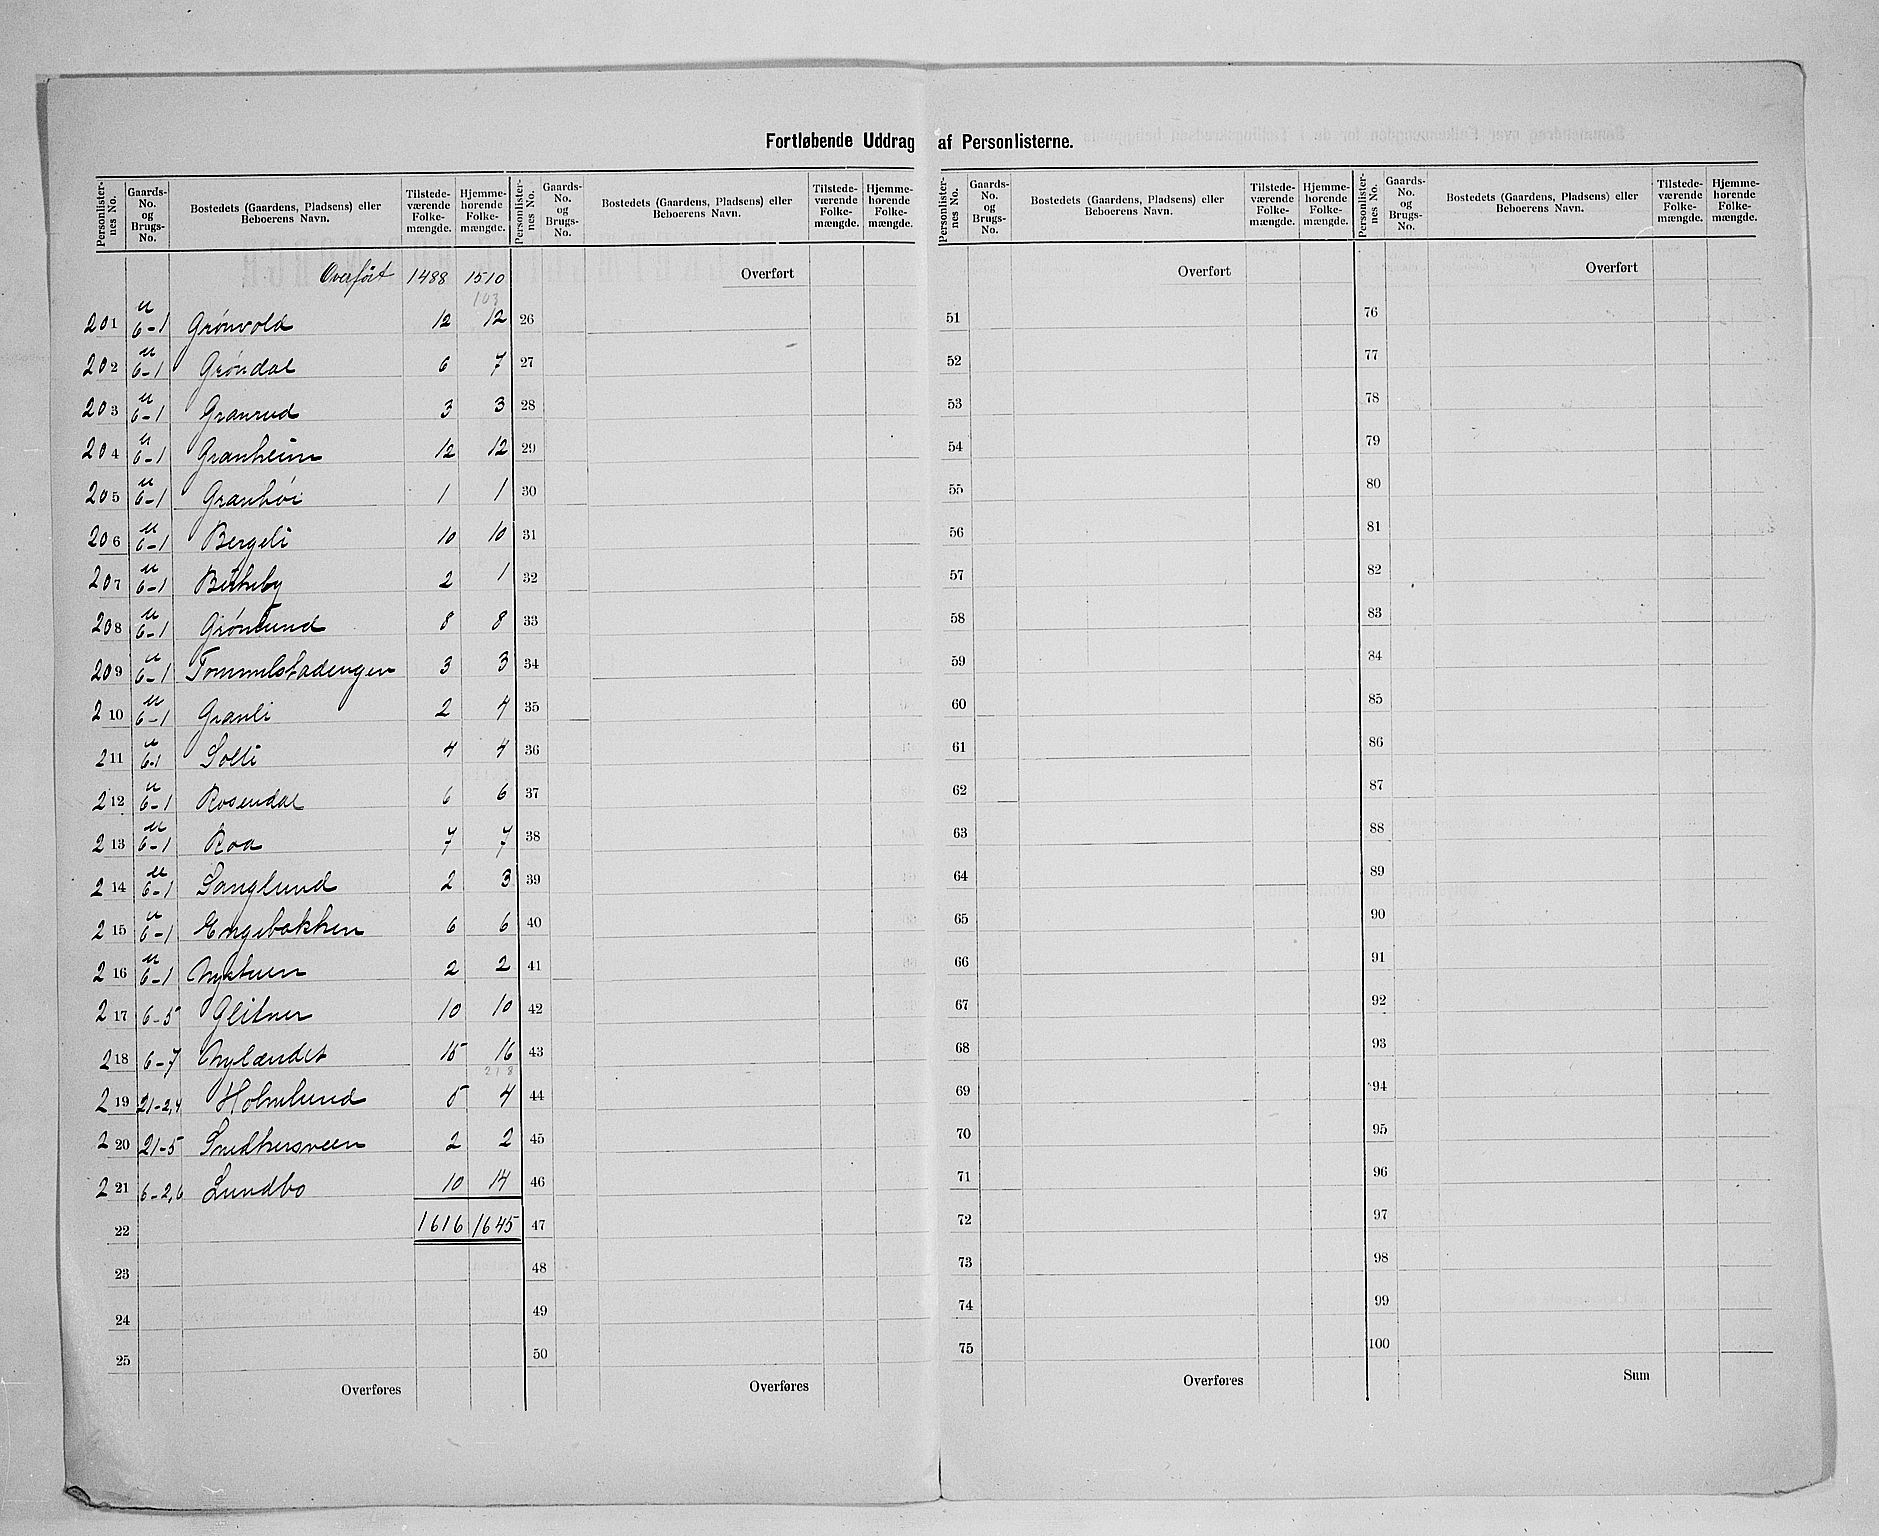 Fortløbende Uddrag af Personlisterne.
Personlister-nes No. Gaards-No. og Brugs-No. Bostedets (Gaardens, Pladsens) eller Beboerens Navn. Tilstede-værende Folke-mængde. Hjemme-hørende Folke-mængde.
Overført 1488 1510
103
201 u 6-1 Grönvold 12 12
202 u 6-1 Gröndal 6 7
203 u 6-1 Granrud 3 3
204 u 6-1 Granheim 12 12
205 u 6-1 Granhöi 1 1
206 u 6-1 Bergeli 10 10
207 u 6-1 Birkeby 2 1
208 u 6-1 Grönlund 8 8
209 u 6-1 Tommelstadengen 3 3
210 u 6-1 Granli 2 4
211 u 6-1 Solli 4 4
212 u 6-1 Rosendal 6 6
213 u 6-1 Roa 7 7
214 u 6-1 Sanglund 2 3
215 u 6-1 Engebakken 6 6
216 u 6-1 Nystuen 2 2
217 6-5 Glitner 10 10
218 6-7 Nylændet 15 16
218
219 21-2,4 Holmlund 5 4
220 21-5 Snedkersveen 2 2
221 6-2,6 Lundbo 10 14
22 1616 1645
23
24
25
Overføres
Personlister-nes No. Gaards-No. og Brugs-No. Bostedets (Gaardens, Pladsens) eller Beboerens Navn. Tilstede-værende Folke-mængde. Hjemme-hørende Folke-mængde.
Overført
26
27
28
29
30
31
32
33
34
35
36
37
38
39
40
41
42
43
44
45
46
47
48
49
50
Overføres
Personlister-nes No. Gaards-No. og Brugs-No. Bostedets (Gaardens, Pladsens) eller Beboerens Navn. Tilstede-værende Folke-mængde. Hjemme-hørende Folke-mængde.
Overført
51
52
53
54
55
56
57
58
59
60
61
62
63
64
65
66
67
68
69
70
71
72
73
74
75
Overføres
Personlister-nes No. Gaards-No. og Brugs-No. Bostedets (Gaardens, Pladsens) eller Beboerens Navn. Tilstede-værende Folke-mængde. Hjemme-hørende Folke-mængde.
Overført
76
77
78
79
80
81
82
83
84
85
86
87
88
89
90
91
92
93
94
95
96
97
98
99
100
Sum